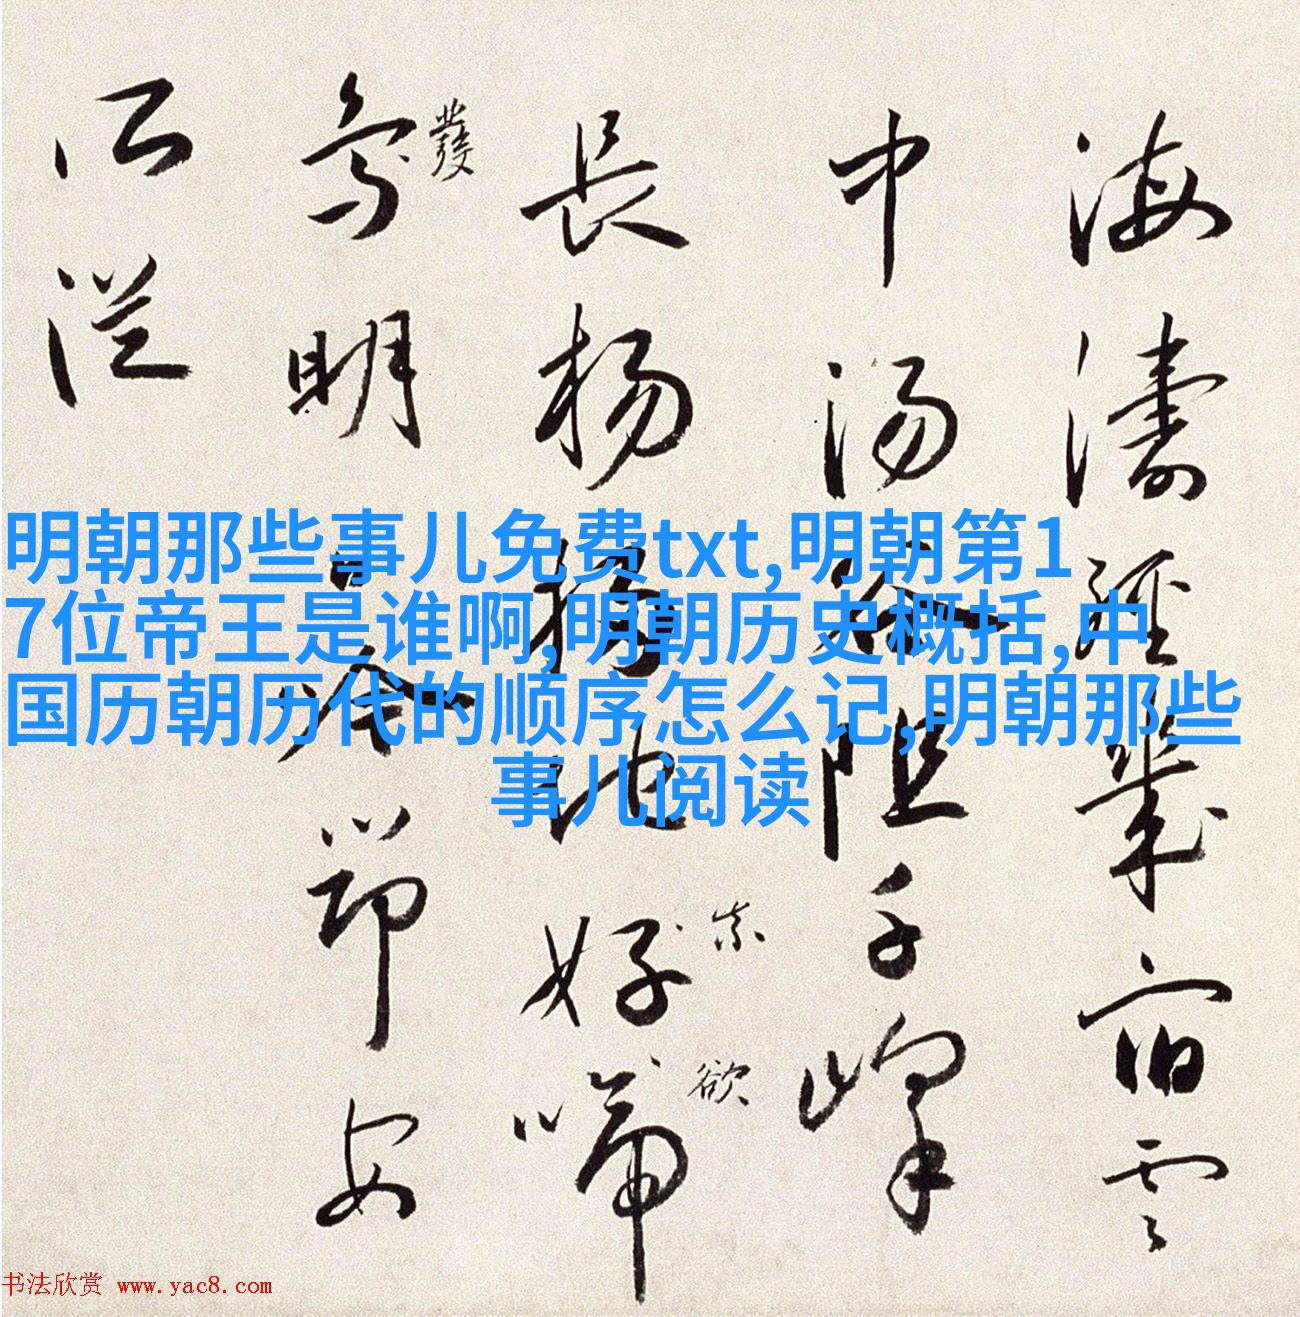 明朝那些事儿免费txt,明朝第1
7位帝王是谁啊,明朝历史概括,中
国历朝历代的顺序怎么记,明朝那些
事儿阅读
海濤經幾宿雲
中湯谷阻千峰
長楊 池好啼
欲
鳥明 安
發
書法欣赏 www.yac8.com